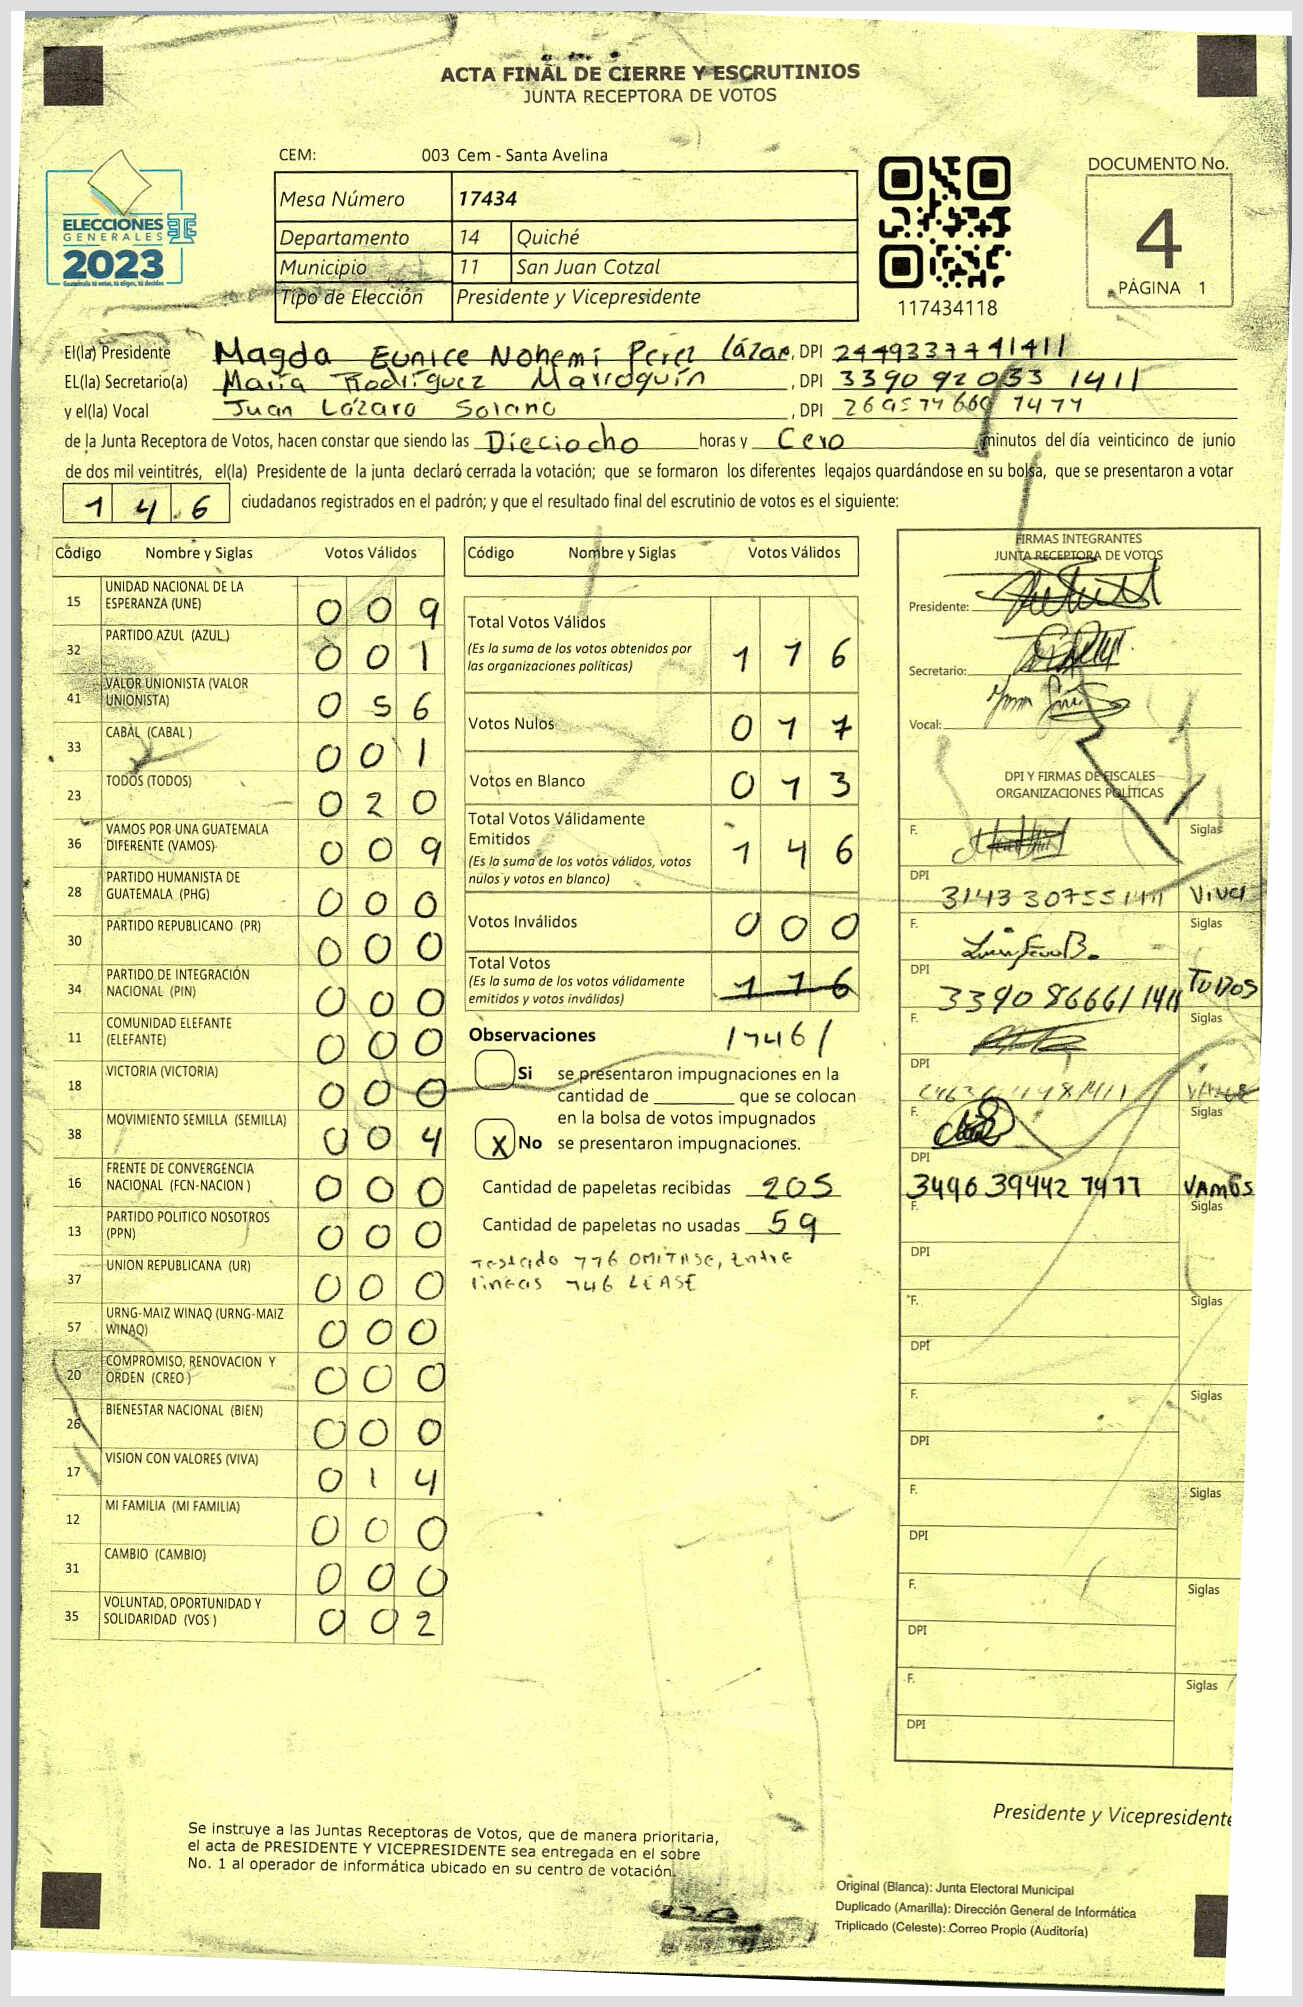 ACTA FINAL DE CIERRE Y ESCRUTINIOS
JUNTA RECEPTORA DE VOTOS
CEM: 003 Cem - Santa Avelina
DOCUMENTO No.
4
PÁGINA 1
ELECCIONES
GENERALES
2023
Guatemala tú votas, tú eliges, tú decides
Mesa Número 17434
Departamento 14 Quiché
Municipio 11 San Juan Cotzal
Tipo de Elección Presidente y Vicepresidente
117434118
El(la) Presidente Magda Eunice Nohemí Perez Lázar, DPI 2449337741411
EL(la) Secretario(a) María Rodríguez Marroquín, DPI 3390 92033 1411
y el(la) Vocal Juan Lázaro Solano, DPI
de la Junta Receptora de Votos, hacen constar que siendo las Dieciocho horas y Cero minutos del día veinticinco de junio
de dos mil veintitrés, el(la) Presidente de la junta declaró cerrada la votación; que se formaron los diferentes legajos guardándose en su bolsa, que se presentaron a votar
146 ciudadanos registrados en el padrón; y que el resultado final del escrutinio de votos es el siguiente:
Código Nombre y Siglas Votos Válidos
15 UNIDAD NACIONAL DE LA
ESPERANZA (UNE) 009
32 PARTIDO AZUL (AZUL) 001
41 VALOR UNIONISTA (VALOR
UNIONISTA) 056
33 CABAL (CABAL ) 001
23 TODOS (TODOS) 020
36 VAMOS POR UNA GUATEMALA
DIFERENTE (VAMOS) 009
28 PARTIDO HUMANISTA DE
GUATEMALA (PHG) 000
30 PARTIDO REPUBLICANO (PR) 000
34 PARTIDO DE INTEGRACIÓN
NACIONAL (PIN) 000
11 COMUNIDAD ELEFANTE
(ELEFANTE) 000
18 VICTORIA (VICTORIA) 000
38 MOVIMIENTO SEMILLA (SEMILLA) 004
16 FRENTE DE CONVERGENCIA
NACIONAL (FCN-NACION ) 000
13 PARTIDO POLITICO NOSOTROS
(PPN) 000
37 UNION REPUBLICANA (UR) 000
57 URNG-MAIZ WINAQ (URNG-MAIZ
WINAQ) 000
20 COMPROMISO, RENOVACION Y
ORDEN (CREO ) 000
26 BIENESTAR NACIONAL (BIEN) 000
17 VISION CON VALORES (VIVA) 014
12 MI FAMILIA (MI FAMILIA) 000
31 CAMBIO (CAMBIO) 000
35 VOLUNTAD, OPORTUNIDAD Y
SOLIDARIDAD (VOS ) 002
Código Nombre y Siglas Votos Válidos
Total Votos Válidos
(Es la suma de los votos obtenidos por
las organizaciones políticas) 116
Votos Nulos 017
Votos en Blanco 013
Total Votos Válidamente
Emitidos
(Es la suma de los votos válidos, votos
nulos y votos en blanco) 146
Votos Inválidos 000
Total Votos
(Es la suma de los votos válidamente
emitidos y votos inválidos) 116
Observaciones /146/
Si se presentaron impugnaciones en la
cantidad de ________ que se colocan
en la bolsa de votos impugnados
X No se presentaron impugnaciones.
Cantidad de papeletas recibidas 205
Cantidad de papeletas no usadas 59
Testado 116 OMITASE, Entre
lineas 146 LEASE
FIRMAS INTEGRANTES
JUNTA RECEPTORA DE VOTOS
Presidente:
Secretario:
Vocal:
DPI Y FIRMAS DE FISCALES
ORGANIZACIONES POLÍTICAS
F. Siglas
DPI 3143 30755 1411 VIVA
F. Siglas
DPI 3390 86661 1411 TODOS
F. Siglas
DPI
F. Siglas
DPI 3496 39442 1411 VAMOS
F. Siglas
DPI
F. Siglas
DPI
F. Siglas
DPI
F. Siglas
DPI
F. Siglas
DPI
F. Siglas
DPI
Presidente y Vicepresidente
Se instruye a las Juntas Receptoras de Votos, que de manera prioritaria,
el acta de PRESIDENTE Y VICEPRESIDENTE sea entregada en el sobre
No. 1 al operador de informática ubicado en su centro de votación.
Original (Blanca): Junta Electoral Municipal
Duplicado (Amarilla): Dirección General de Informática
Triplicado (Celeste): Correo Propio (Auditoría)